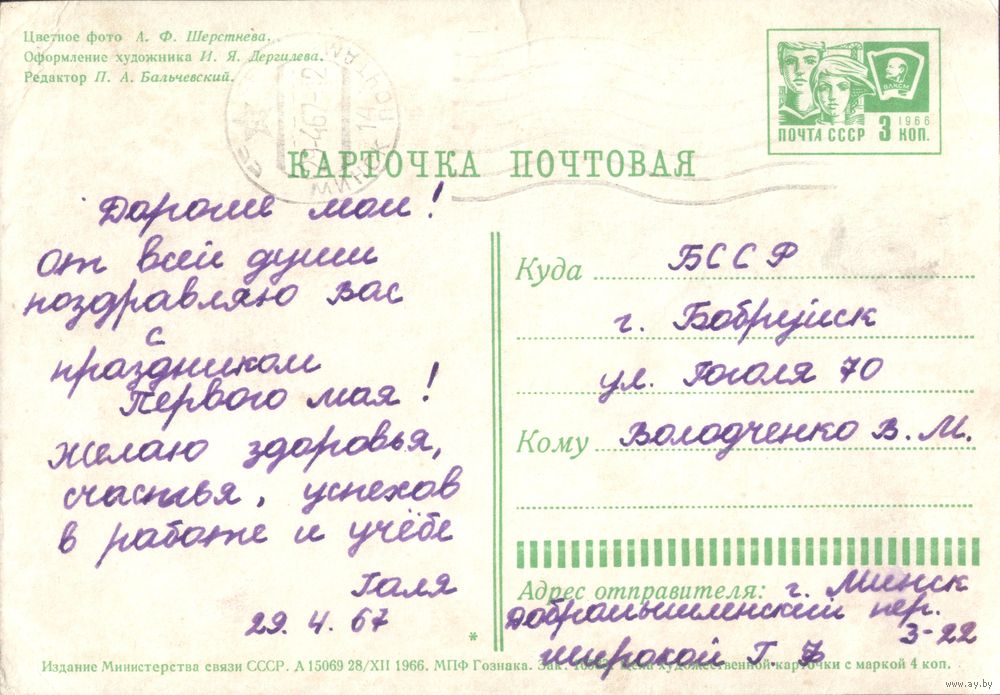 Цветное фото А. Ф. Шерстнева.
Оформление художника И. Я. Дергилева.
Редактор П. А. Бальчевский.
МИНСК 14 ПОЧТАМТ
ВЛКСМ
1966
ПОЧТА СССР 3 КОП.
КАРТОЧКА ПОЧТОВАЯ
Дорогие мои!
от всей души
поздравляю вас
с
праздником
Первого мая!
желаю здоровья,
счастья, успехов
в работе и учёбе
Галя
29. 4. 67
Куда БССР
г. Бобруйск
ул. Гоголя 70
Кому Володченко В. М.
Адрес отправителя: г. Минск
Добромышленский пер.
3-22
широкой Г. В
*
Издание Министерства связи СССР. А 15069 28/XII 1966. МПФ Гознака. Зак. Цена художественной карточки с маркой 4 коп.
www.ay.by